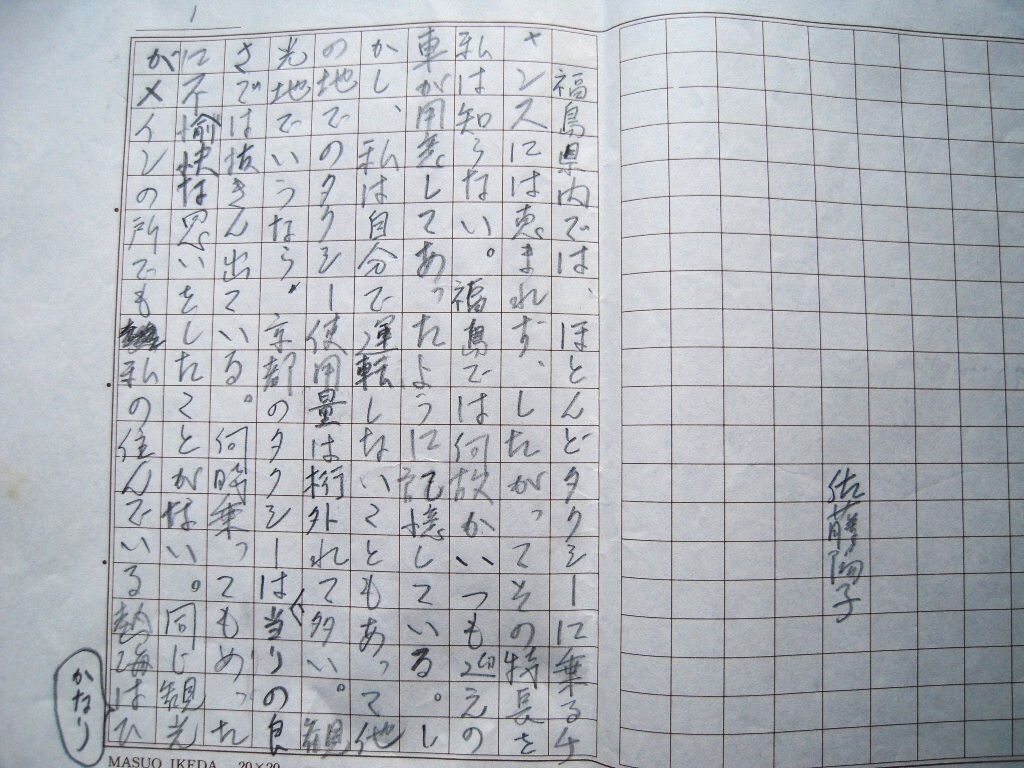 佐藤陽子
福島県内では、ほとんどタクシーに乗るチ
ャンスには恵まれず、したがってその特長を
私は知らない。福島では何故かいつも迎えの
車が用意してあったように記憶している。し
かし、私は自分で運転しないこともあって他
の地でのタクシー使用量は桁外れて多い。観
光地でいうなら、京都のタクシーは当りの良
さでは抜きん出ている。何時乗ってもめった
に不愉快な思いをしたことがない。同じ観光
がメインの所でも私の住んでいる熱海はひ
かなり
MASUO IKEDA 20×20
1